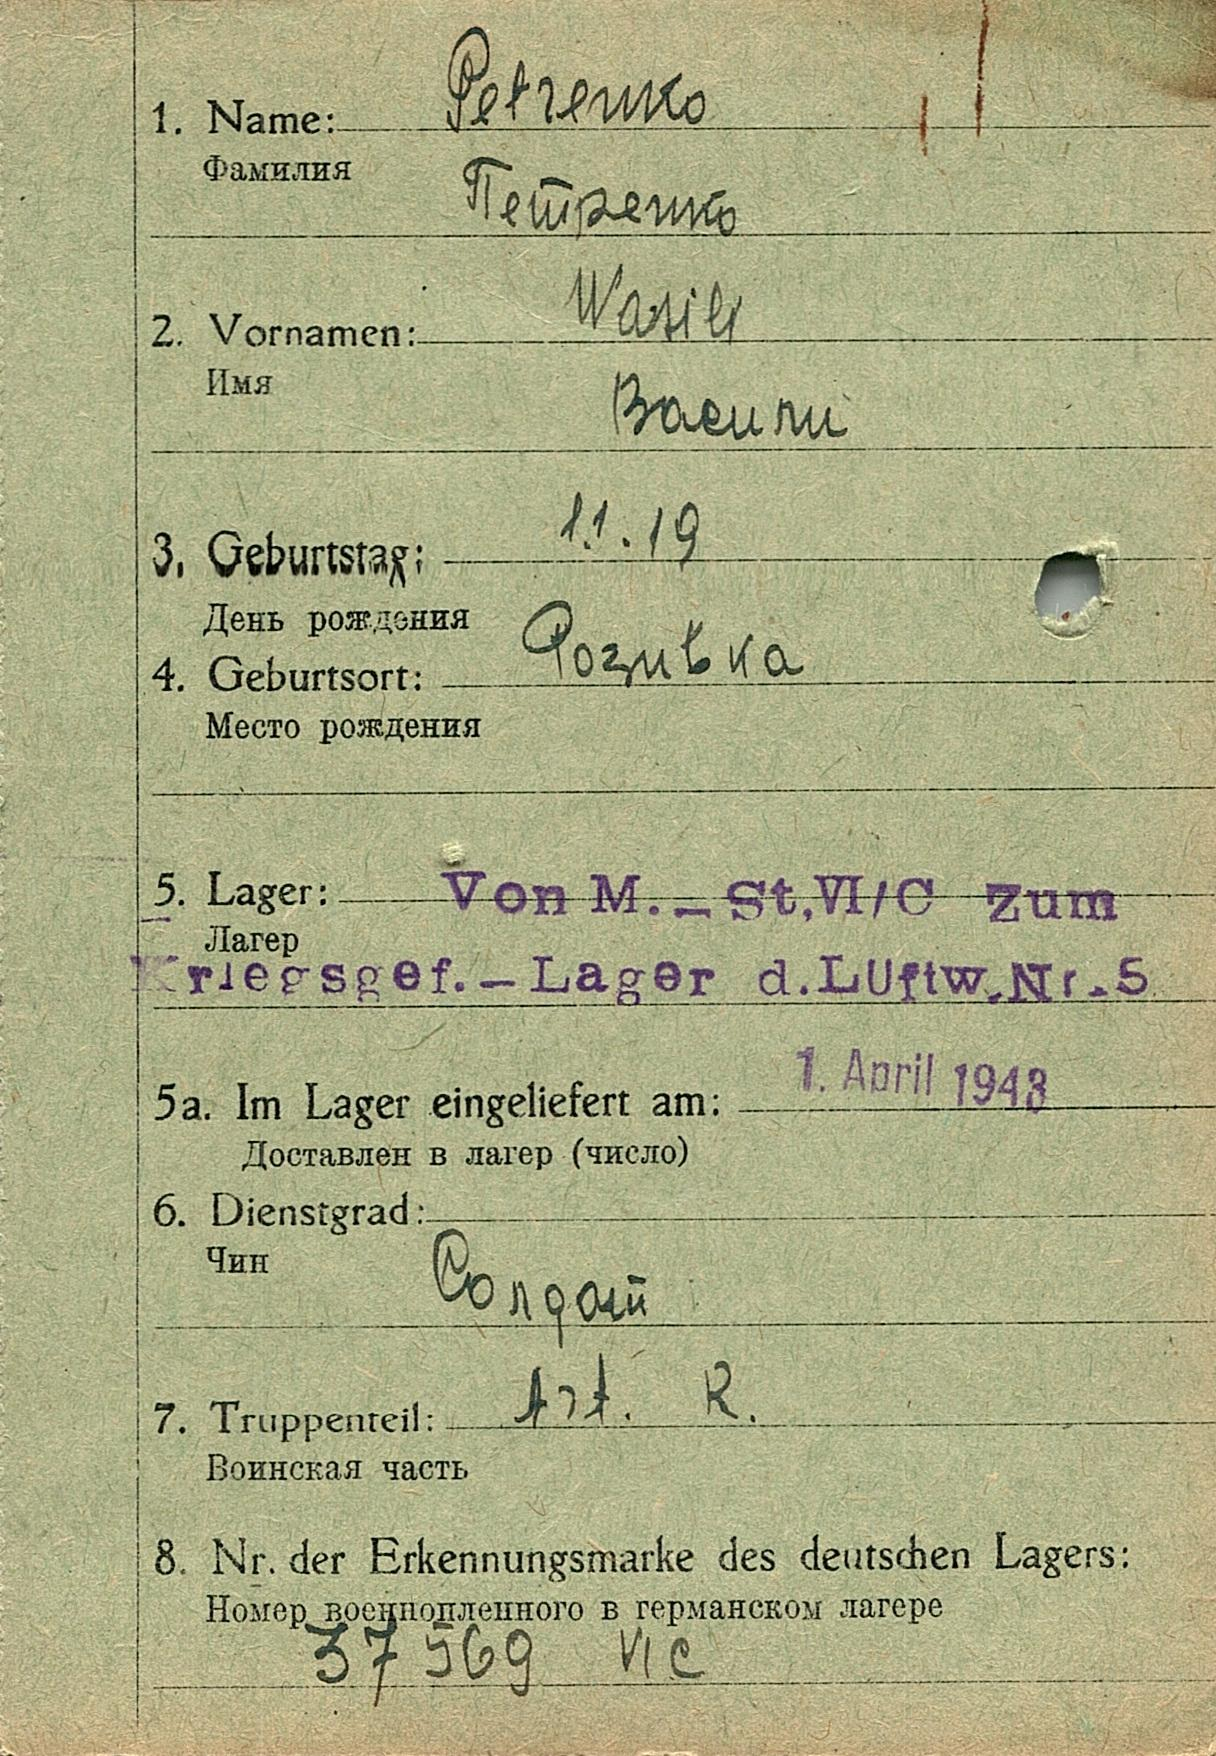 1. Name: Petrenko
Фамилия
Петренко
2. Vornamen: Wasili
Имя
Васили
3. Geburtstag: 1.1.19
День рождения
4. Geburtsort: Розивка
Место рождения
5. Lager: Von M.-St.VI/C zum
Лагер
Kriegsgef.-Lager d.LUftw.Nr.5
5a. Im Lager eingeliefert am: 1. April 1943
Доставлен в лагер (число)
6. Dienstgrad:
Чин
Солдат
7. Truppenteil: Art. R.
Воинская часть
8. Nr. der Erkennungsmarke des deutschen Lagers:
Номер военнопленного в германском лагере
37569 VI C